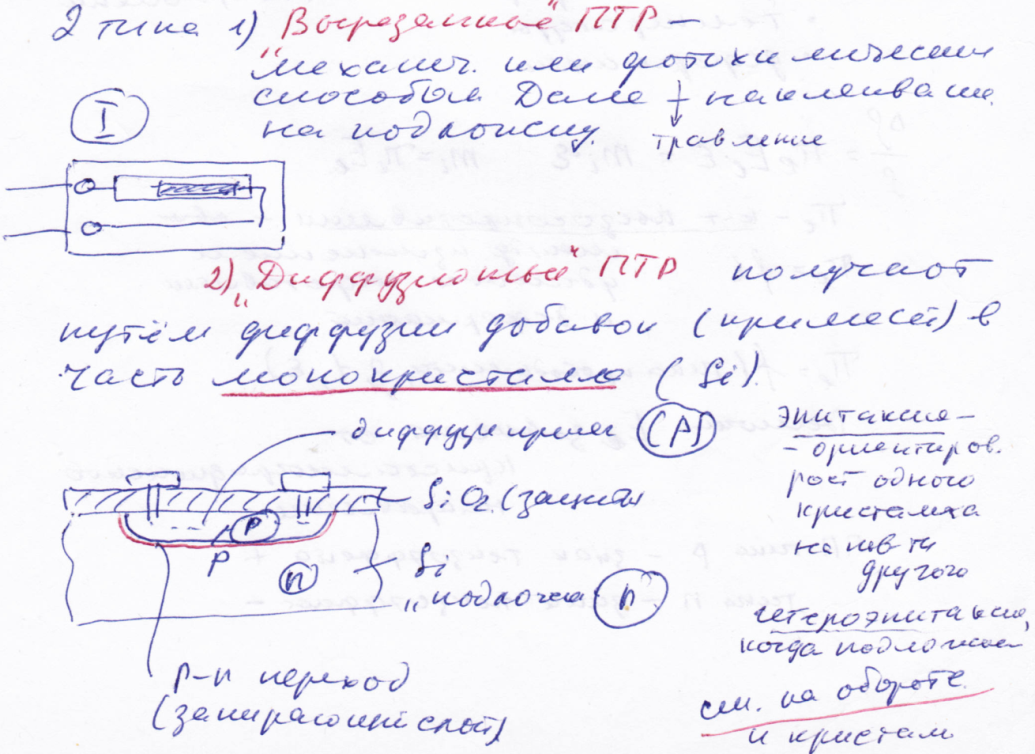 2 типа 1) "Вырезанные" ПТР —
механич. или фотохимическим
способом Далее → наклеивание
на подложку. травление
I
2) "Диффузионные" ПТР получают
путём диффузии добавок (примесей) в
часть монокристалла (Si).
диффузи (P)
SiO2 (защитн
P
P
n
Si
"подложка" n
p-n переход
(запирающий слой)
эпитаксия —
- ориентиров.
рост одного
кристалла
на пов-ти
другого
гетероэпитаксия,
когда подложка
см. на обороте.
и кристалл